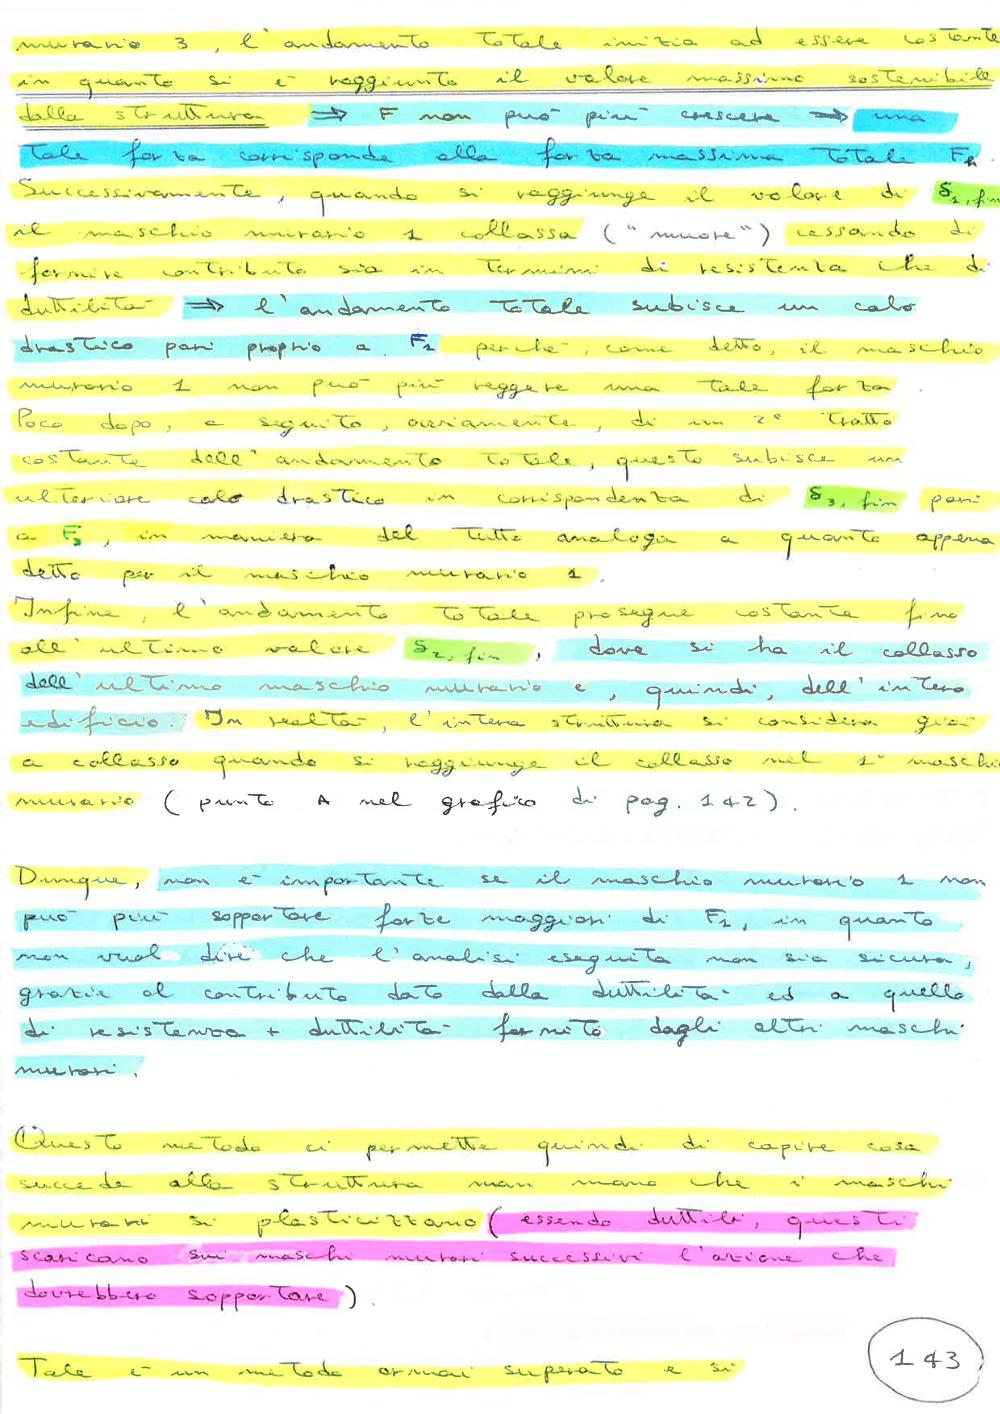 murario 3, l'andamento totale inizia ad essere costante
in quanto si è raggiunto il valore massimo sostenibile
dalla struttura ⇒ F non può più crescere ⇒ una
tale forza corrisponde alla forza massima totale FR.
Successivamente, quando si raggiunge il valore di δ1, fin
il maschio murario 1 collassa ("muore") cessando di
fornire contributo sia in termini di resistenza che di
duttilità ⇒ l'andamento totale subisce un calo
drastico pari proprio a F1 perché, come detto, il maschio
murario 1 non può più reggere una tale forza.
Poco dopo, a seguito, ovviamente, di un 2° tratto
costante dell'andamento totale, questo subisce un
ulteriore calo drastico in corrispondenza di δ3, fin pari
a F3, in maniera del tutto analoga a quanto appena
detto per il maschio murario 1.
Infine, l'andamento totale prosegue costante fino
all'ultimo valore δ2, fin, dove si ha il collasso
dell'ultimo maschio murario e, quindi, dell'intero
edificio. In realtà, l'intera struttura si considera già
a collasso quando si raggiunge il collasso nel 1° maschio
murario (punto A nel grafico di pag. 142).
Dunque, non è importante se il maschio murario 1 non
può più sopportare forze maggiori di F1, in quanto
non vuol dire che l'analisi eseguita non sia sicura,
grazie al contributo dato dalla duttilità ed a quello
di resistenza + duttilità fornito dagli altri maschi
murari.
Questo metodo ci permette quindi di capire cosa
succede alla struttura man mano che i maschi
murari si plasticizzano (essendo duttili, questi
scaricano sui maschi murari successivi l'azione che
dovrebbero sopportare).
Tale è un metodo ormai superato e si
143